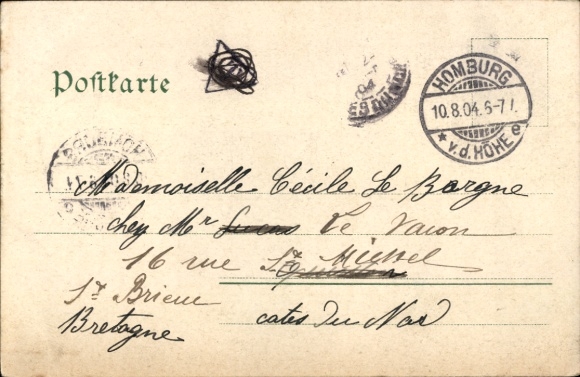 Postkarte
HOMBURG
10.8.04. 6-7 N.
* v.d. HÖHE e
Mademoiselle Cécile Le Borgne
chez Mr Lucas Le Vacon
16 rue St Michel
St Brieuc
Bretagne
cotes du Nord